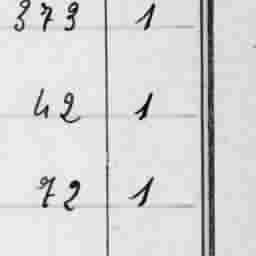 373 1
42 1
72 1